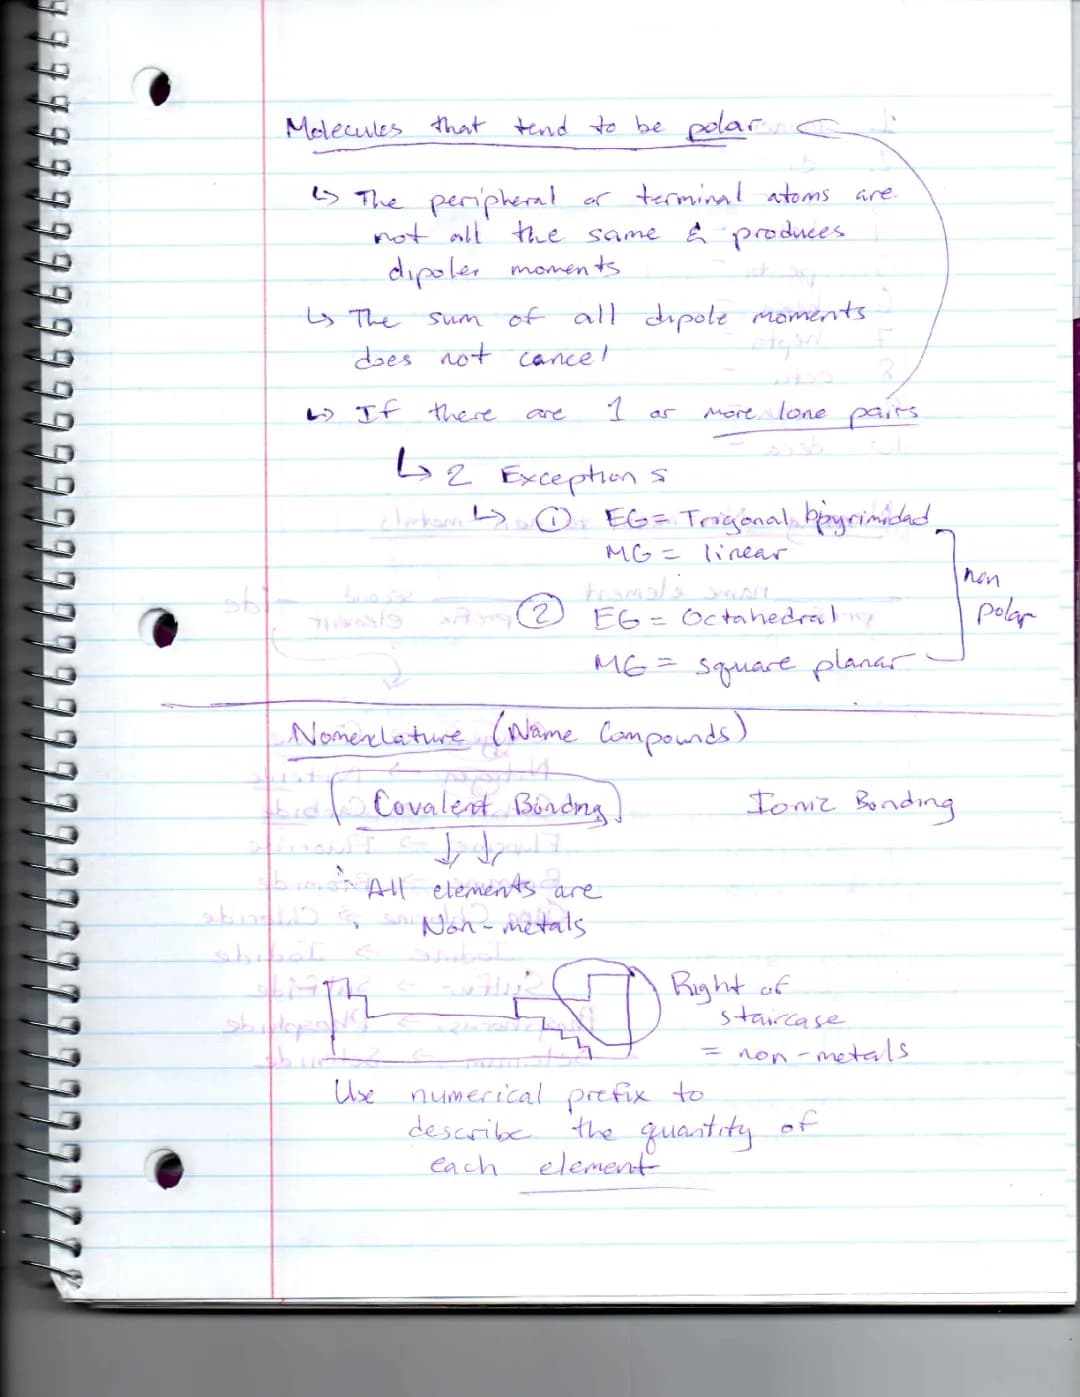 Molecules that tend to be polar
↳ The peripheral or terminal atoms are
not all the same & produces
dipoler moments
↳ The sum of all dipole moments
does not cancel
↳ If there are 1 or more lone pairs
↳ 2 Exceptions
↳ ① EG = Trigonal bpyrimidad
MG = linear
non
polar
② EG = Octahedral
MG = square planar
Nomenclature (Name Compounds)
Covalent Bonding
Ionic Bonding
All elements are
Non-metals
Right of
staircase
= non-metals
Use numerical prefix to
describe the quantity of
each element